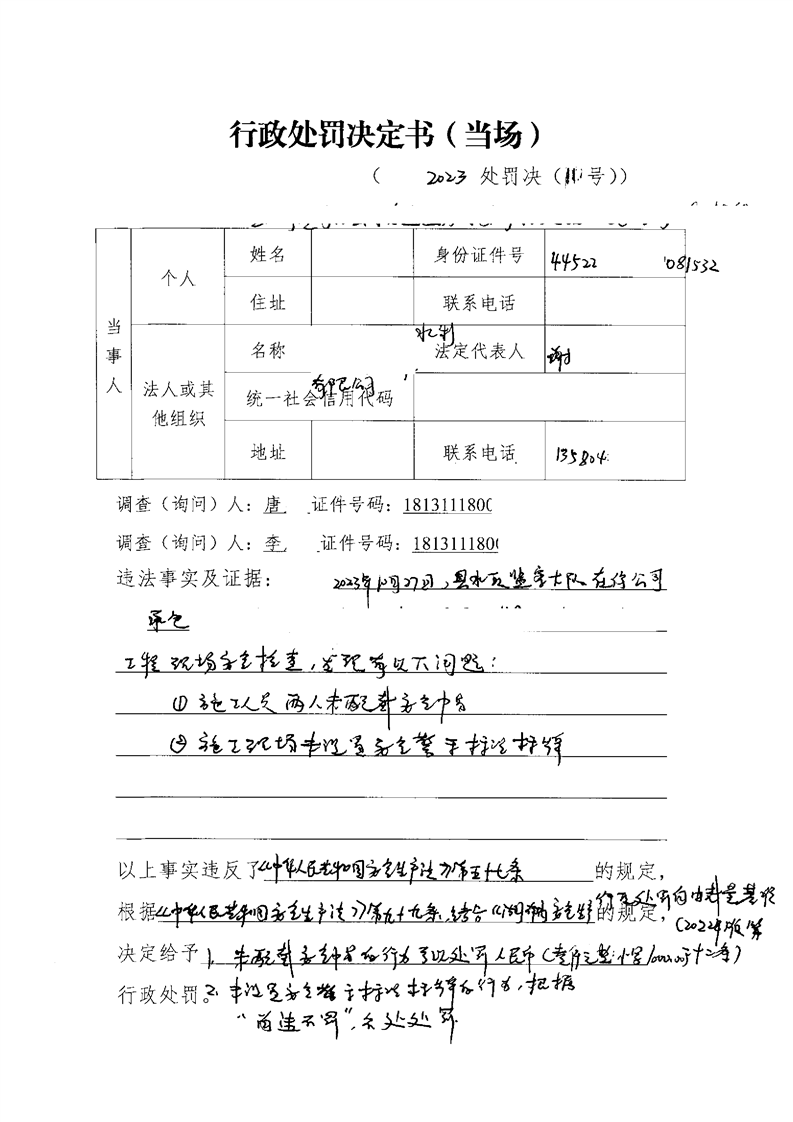 行政处罚决定书（当场）
（ 2023 处罚决（111号））
当事人
个人
姓名
身份证件号
44522 081532
住址
联系电话
法人或其他组织
名称
水利
有限公司
法定代表人
谢
统一社会信用代码
地址
联系电话
135804
调查（询问）人：唐 证件号码：1813111800
调查（询问）人：李 证件号码：1813111800
违法事实及证据： 2023年10月27日，县水政监察大队在你公司
承包
工程现场安全检查，发现有以下问题：
① 施工人员两人未配戴安全帽
② 施工现场未设置安全警示标识标牌
以上事实违反了《中华人民共和国安全生产法》第五十七条 的规定，
根据《中华人民共和国安全生产法》第九十九条，结合《湖南安全生产 行政处罚自由裁量基准 的规定，
（2022年版第
决定给予 1. 未配戴安全帽的行为予以处罚人民币（壹仟元整 小写1000.00于十二条）
行政处罚。2. 未设置安全警示标识标牌的行为，根据
“首违不罚”，不处处罚